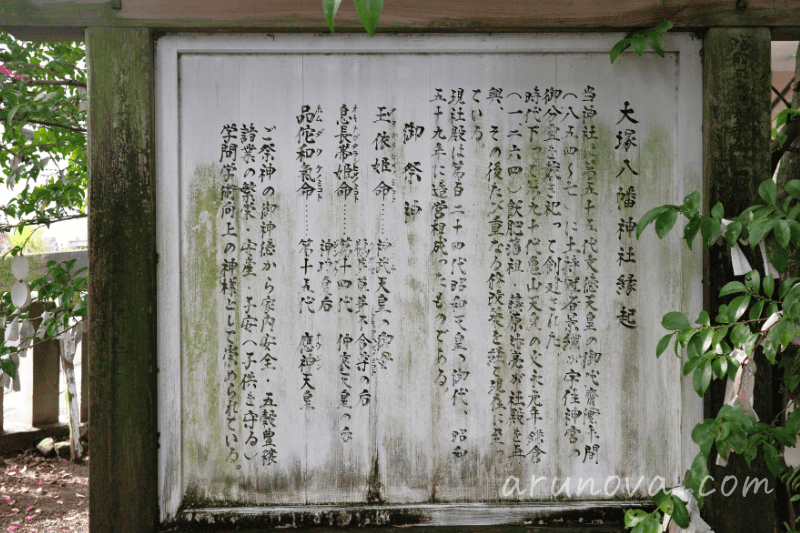 大塚八幡神社縁起
当神社は第五十五代文徳天皇の御代齋衡年間
(八五四〜七)に土持冠者景綱が宇佐神宮の
御分霊を齋き祀って創建された
時代下って第九十代亀山天皇の文永元年鎌倉
(一二六四)飫肥藩祖 藤原祐亮が社殿を再
興、その後たび重なる修改築を経て現在に至っ
ている。
現社殿は第百二十四代昭和天皇の御代、昭和
五十九年に造営相成ったものである。
御祭神
玉依姫命…… 神武天皇の御母
鸕鷀草葺不合尊の后
息長帯姫命…… 第十四代 仲哀天皇の后
神功皇后
品佗和氣命…… 第十五代 應神天皇
ご祭神の御神徳から家内安全・五穀豊穣
諸業の繁栄・安産・子安(子供を守る)
学問学術向上の神様として崇められている。
arunova.com